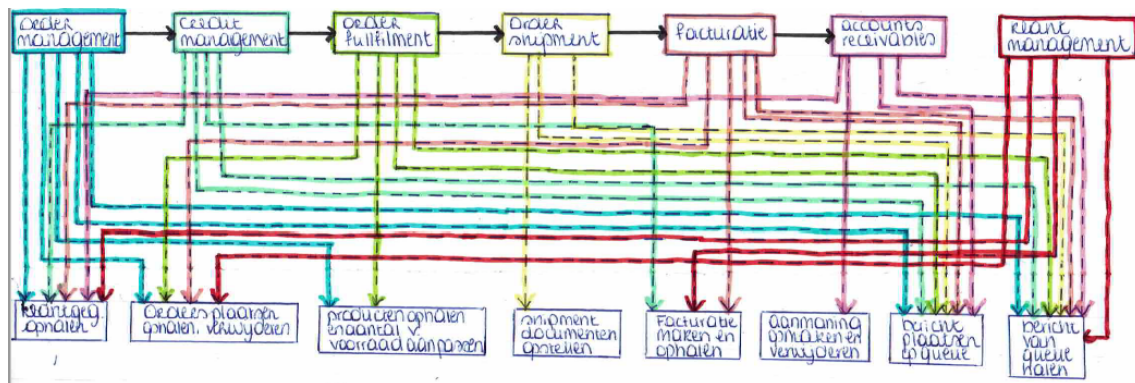 order
management
credit
management
order
fullfilment
order
shipment
facturatie
accounts
receivables
klant
management
klantgeg.
ophalen
orders plaatsen
ophalen, verwyderen
producten ophalen
en aantal v.
voorraad aanpassen
shipment
documenten
opstellen
Facturatie
maken en
ophalen
aanmaning
opmaken en
verwyderen
bericht
plaatsen
op queue
bericht
van
queue
halen